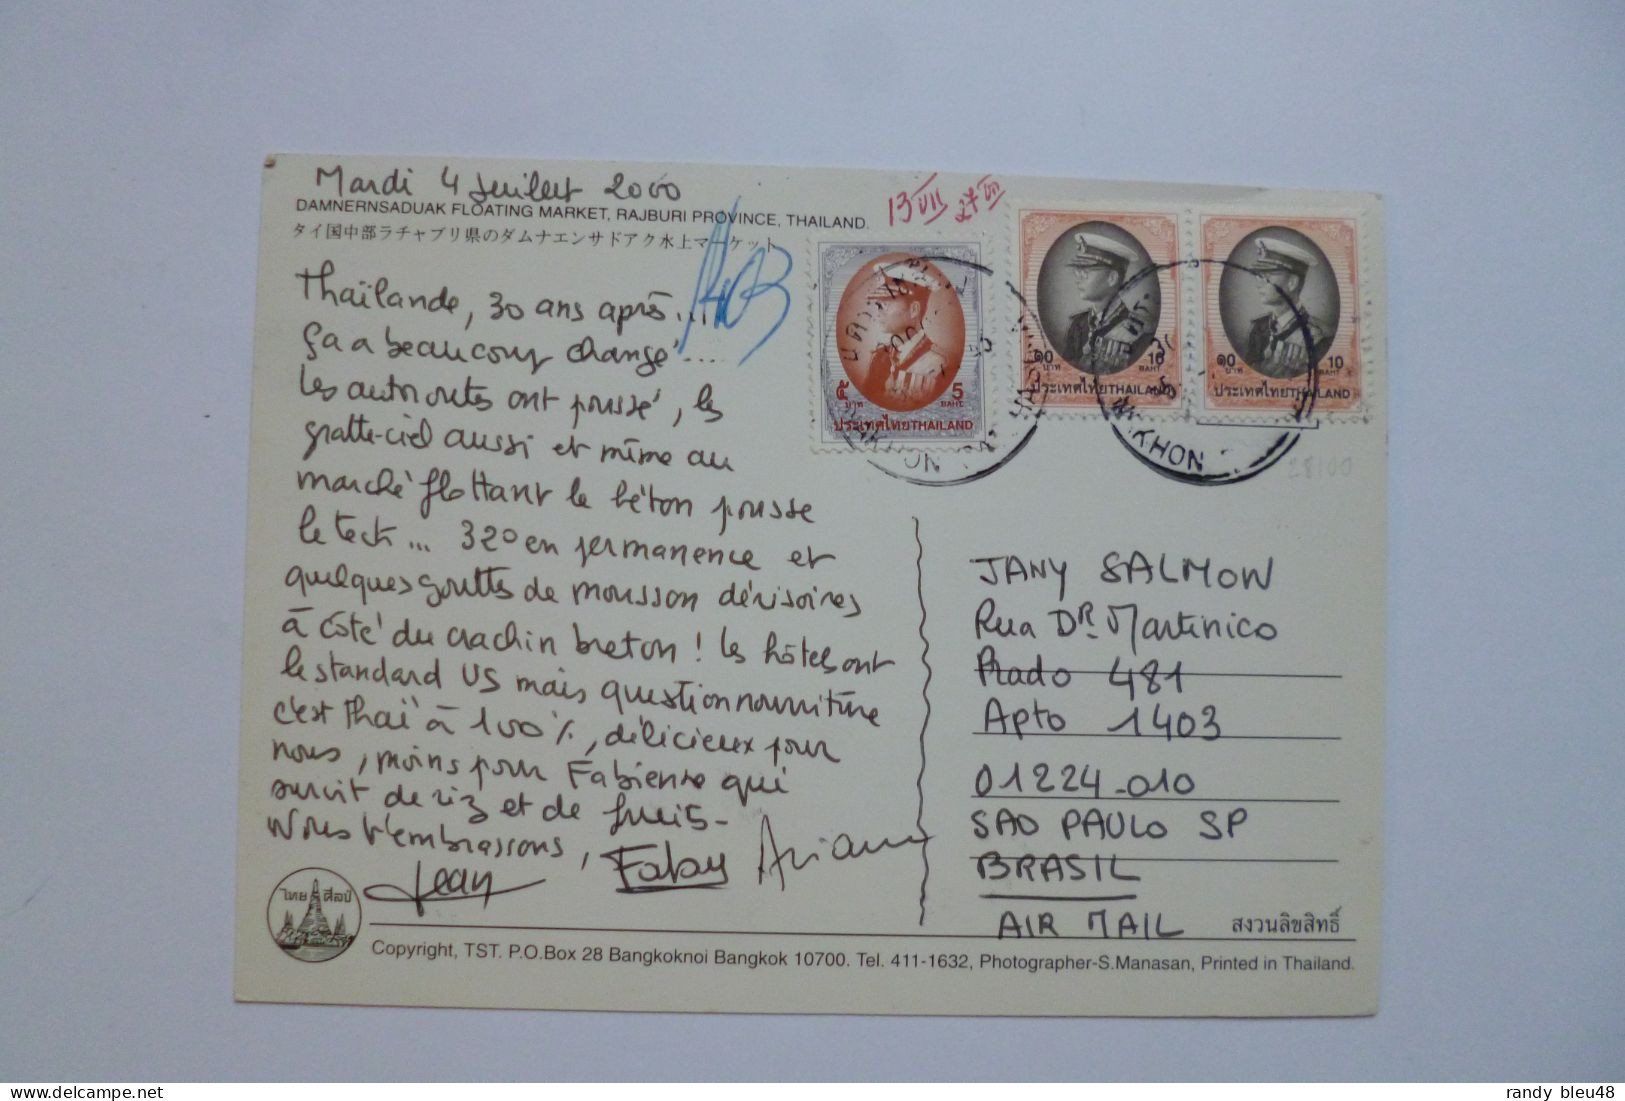 Mardi 4 Juillet 2000
DAMNERNSADUAK FLOATING MARKET, RAJBURI PROVINCE, THAILAND.
タイ国中部ラチャブリ県のダムナエンサドアク水上マーケット
13 VII 27 VII
Thaïlande, 30 ans après...
ça a beaucoup changé ....
les autoroutes ont poussé, les
gratte-ciel aussi et même au
marché flottant le béton pousse
le teck... 32° en permanence et
quelques gouttes de mousson dérisoires
à côté du crachin breton ! les hôtels ont
le standard US mais question nourriture
c'est thaï à 100%, délicieux pour
nous, moins pour Fabienne qui
survit de riz et de fruits-
Nous t'embrassons,
Jean Fabau Ariane
๕ บาท 5 BAHT
ประเทศไทย THAILAND
๑๐ บาท 10 BAHT
ประเทศไทย THAILAND
๑๐ บาท 10 BAHT
ประเทศไทย THAILAND
JANY SALMON
Rua DR. Martinico
Prado 481
Apto 1403
01224-010
SAO PAULO SP
BRASIL
AIR MAIL
สงวนลิขสิทธิ์
ไทย ศิลป์
Copyright, TST. P.O.Box 28 Bangkoknoi Bangkok 10700. Tel. 411-1632, Photographer-S.Manasan, Printed in Thailand.
randy bleu48